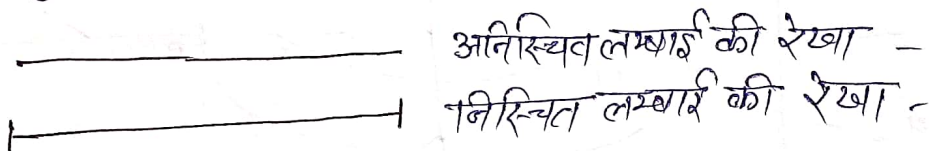 अनिस्चित लम्बाई की रेखा –
निस्चित लम्बाई की रेखा -